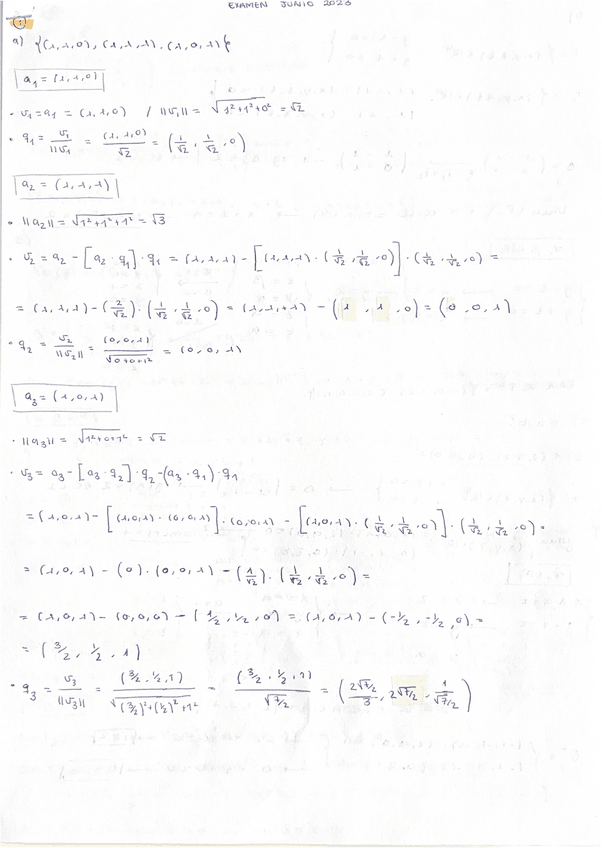 EXAMEN JUNIO 2023
1
a) {(1,1,0), (1,1,1), (1,0,1)}
a₁ = (1,1,0)
· v₁ = a₁ = (1,1,0) / ||v₁|| = √(1²+1²+0²) = √2
· q₁ = v₁/||v₁ = (1,1,0)/√2 = (1/√2, 1/√2, 0)
a₂ = (1,1,1)
· ||a₂|| = √(1²+1²+1²) = √3
· v₂ = a₂ - [a₂·q₁]·q₁ = (1,1,1) - [(1,1,1)·(1/√2, 1/√2, 0)]·(1/√2, 1/√2, 0) =
= (1,1,1) - (2/√2)·(1/√2, 1/√2, 0) = (1,1,1) - (1, 1, 0) = (0,0,1)
· q₂ = v₂/||v₂|| = (0,0,1)/√(0+0+1²) = (0,0,1)
a₃ = (1,0,1)
· ||a₃|| = √(1²+0+1²) = √2
· v₃ = a₃ - [a₃·q₂]·q₂ - (a₃·q₁)·q₁
= (1,0,1) - [(1,0,1)·(0,0,1)]·(0,0,1) - [(1,0,1)·(1/√2, 1/√2, 0)]·(1/√2, 1/√2, 0) =
= (1,0,1) - (0)·(0,0,1) - (1/√2)·(1/√2, 1/√2, 0) =
= (1,0,1) - (0,0,0) - (1/2, 1/2, 0) = (1,0,1) - (-1/2, -1/2, 0) =
= (3/2, 1/2, 1)
· q₃ = v₃/||v₃|| = (3/2, 1/2, 1)/√((3/2)²+(1/2)²+1²) = (3/2, 1/2, 1)/√7/2 = (2√7/2/3, 2√7/2, 1/√7/2)